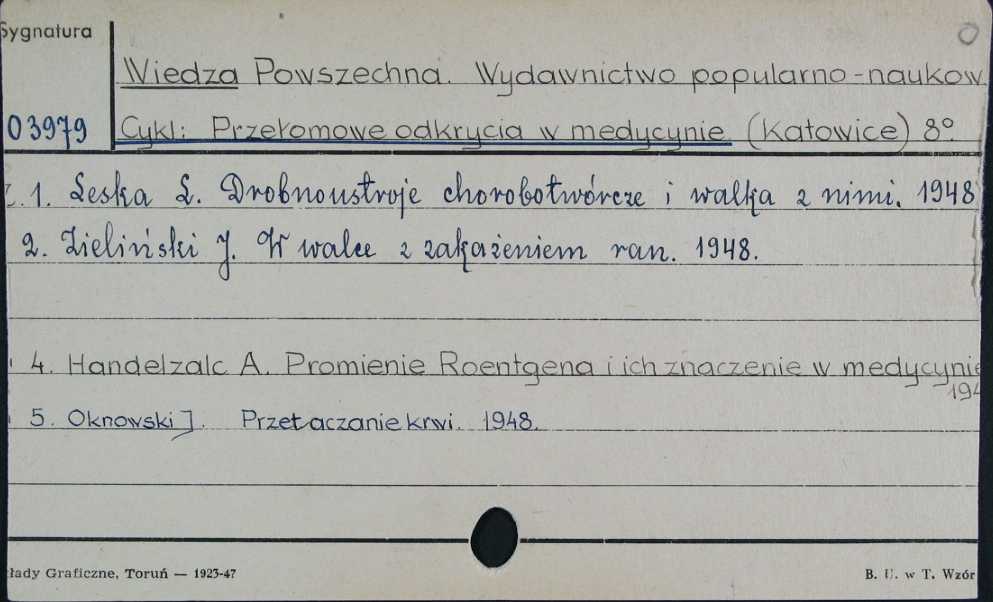 Sygnatura
Wiedza Powszechna. Wydawnictwo popularno-naukow
03979 Cykl: Przełomowe odkrycia w medycynie (Katowice) 8°
z. 1. Leska L. Drobnoustroje chorobotwórcze i walka z nimi. 1948
2. Zieliński J. W walce z zakażeniem ran. 1948.
4. Handelzalc A. Promienie Roentgena i ich znaczenie w medycynie
194
5. Oknowski J. Przetaczanie krwi. 1948.
łady Graficzne, Toruń — 1923-47 B. U. w T. Wzór